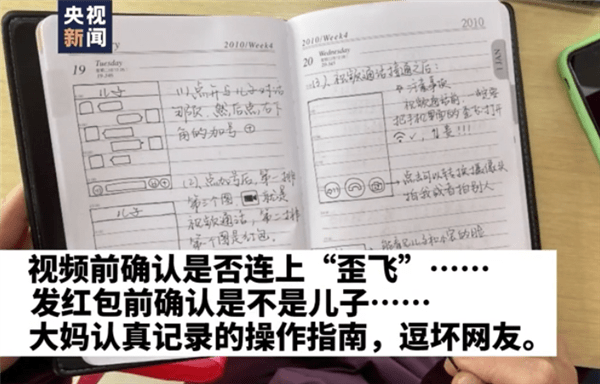 央视
新闻
2010/Week4
19 Tuesday
儿子
(1)点开与儿子对话
那页,然后点右下
角的加号⊕
(2)点加号后,第一排
第三个图 就是
视频通话,第二排
第一个图是红包。
儿子
2010
2010/Week4
20 Wednesday
JAN
(3)视频通话接通之后:
视频通话前一定要
把手机里面的歪飞打开
点击可以转换摄像头
拍我或者拍别人
视频前确认是否连上“歪飞”……
发红包前确认是不是儿子……
大妈认真记录的操作指南,逗坏网友。